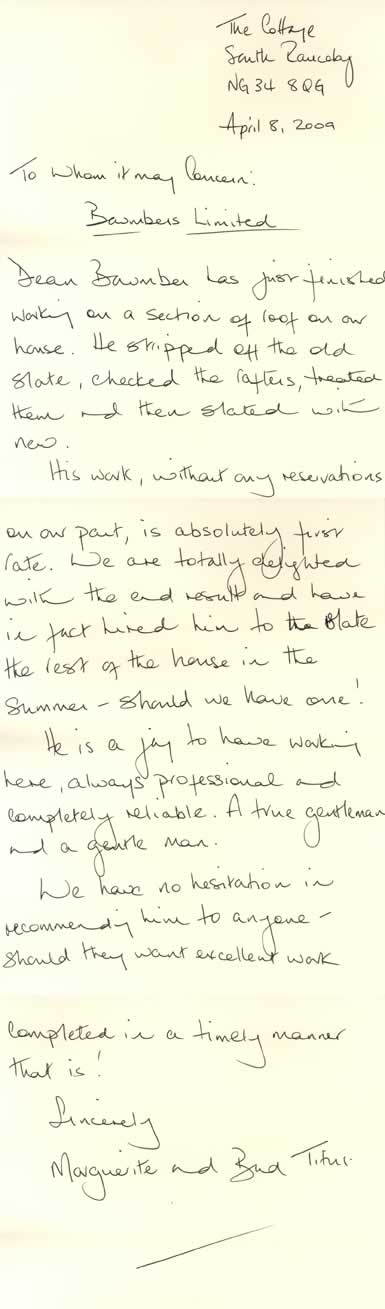 The Cottage
South Rauceby
NG34 8QG
April 8, 2009
To Whom it may Concern:
Baumbers Limited
Dean Baumber has just finished
working on a section of roof on our
house. He stripped off the old
slate, checked the rafters, treated
them and then slated with
new.
His work, without any reservations
on our part, is absolutely first
rate. We are totally delighted
with the end result and have
in fact hired him to the slate
the rest of the house in the
Summer – should we have one!
He is a joy to have working
here, always professional and
completely reliable. A true gentleman
and a gentle man.
We have no hesitation in
recommending him to anyone –
should they want excellent work
completed in a timely manner
that is!
Sincerely
Marguerite and Bud Titus.